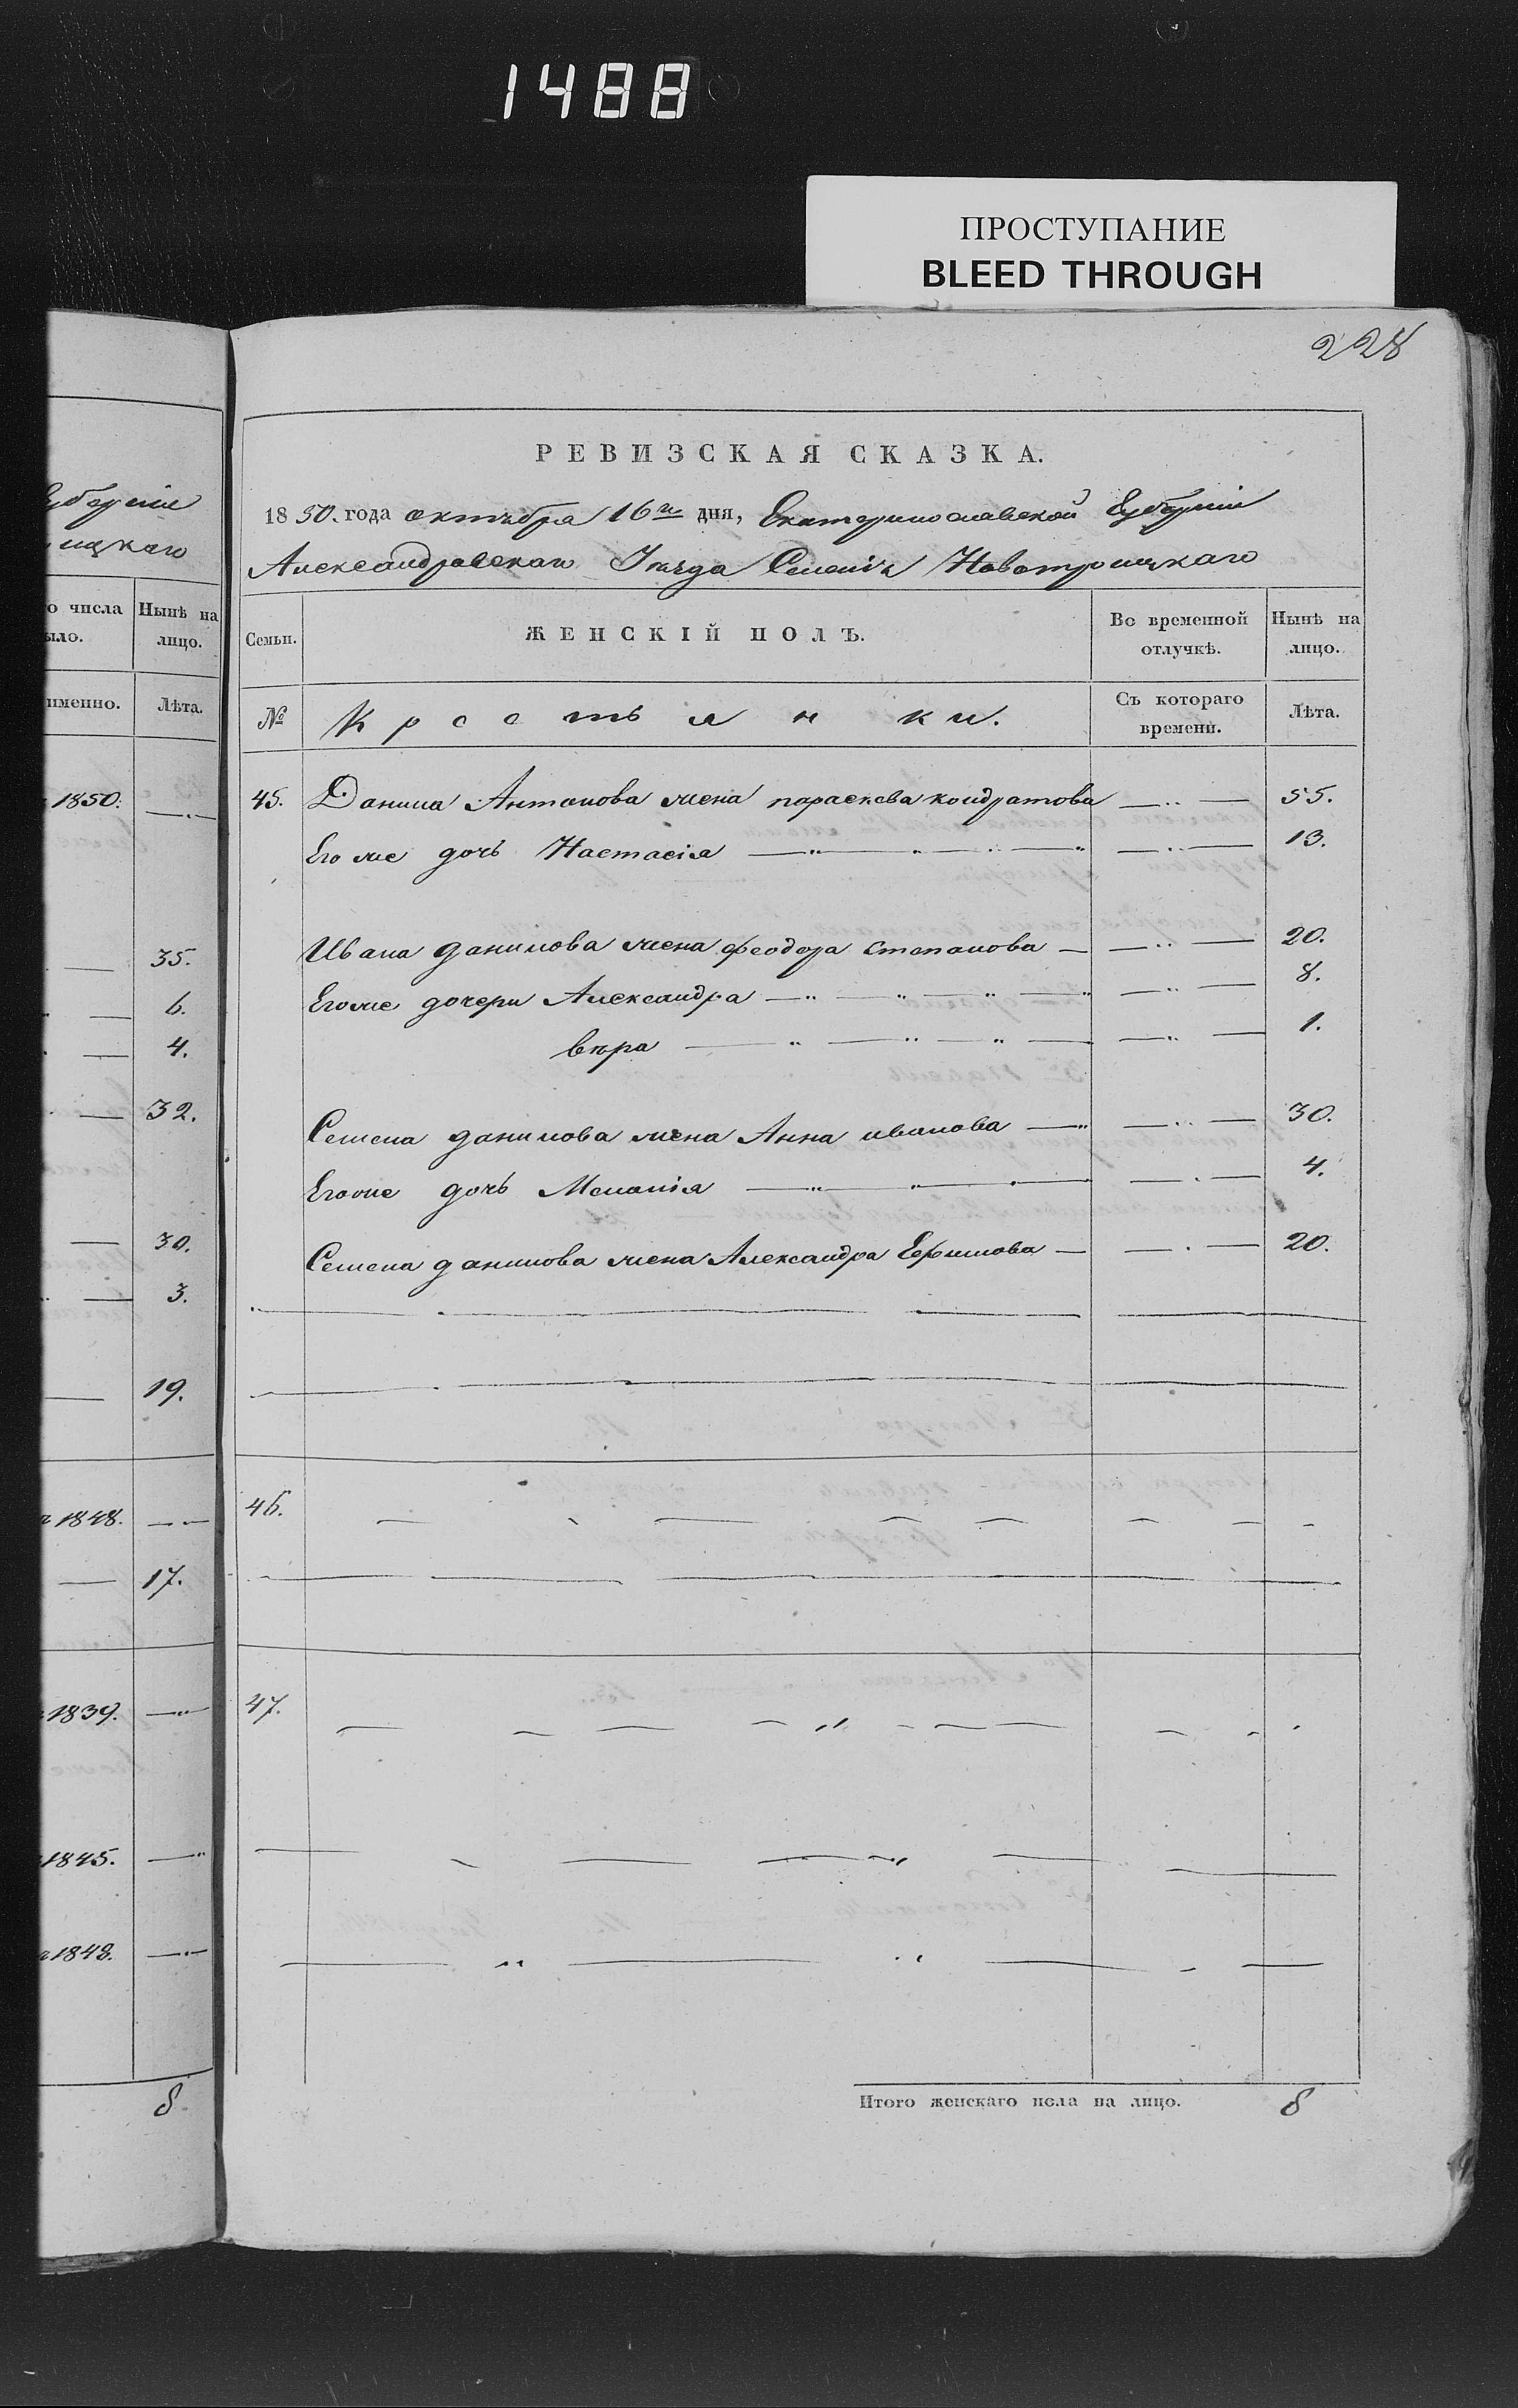 1488
ПРОСТУПАНИЕ
BLEED THROUGH
228
губерніи
ицкаго
о числа
ыло.
Нынѣ на
лицо.
именно.
Лѣта.
1850.
35.
6.
4.
32.
30.
3.
19.
1848.
17.
1839.
1845.
1848.
8
РЕВИЗСКАЯ СКАЗКА.
1850. года октября 16го дня, Екатеринославской Губерніи
Александровскаго Уѣзда Селенія Новотроицкаго
Семьи.
ЖЕНСКІЙ ПОЛЪ.
Во временной
отлучкѣ.
Нынѣ на
лицо.
№
Крестьянки.
Съ котораго
времени.
Лѣта.
45. Данила Антонова жена параскева кондратова 55.
Его же дочь Настасія 13.
Ивана данилова жена феодора степанова 20.
Егоже дочери Александра 8.
вѣра 1.
Семена данилова жена Анна иванова 30.
Егоже дочь Меланія 4.
Семена данилова жена Александра Ефимова 20.
46.
47.
Итого женскаго пола на лицо. 8